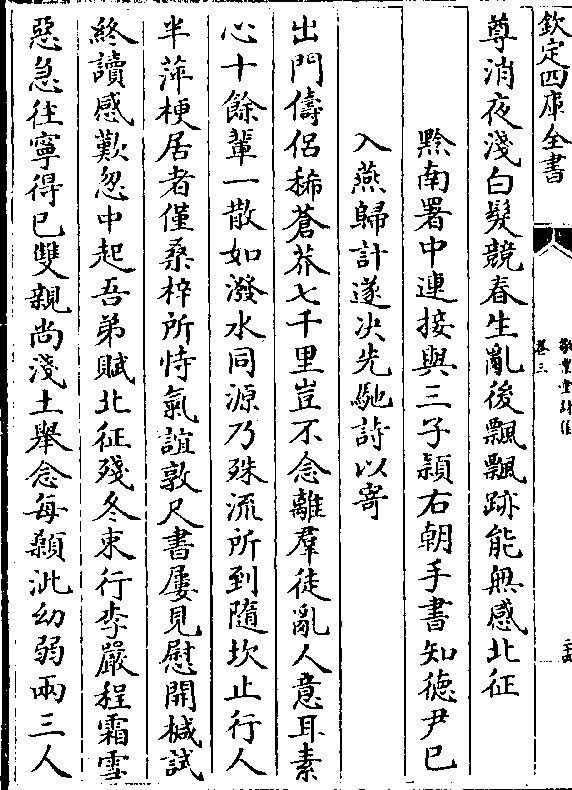 欽定四庫全書
敬業堂詩集
卷三
尊消夜淺白髮競春生亂後飄飄跡能無感北征
黔南署中連接與三子潁右朝手書知德尹已
入燕歸計遂決先馳詩以寄
出門儔侶稀蒼茶七千里豈不念離羣徒亂人意耳素
心十餘輩一散如潑水同源乃殊流所到隨坎止行人
半萍梗居者僅桑梓所恃氣誼敦尺書屢見慰開椷試
終讀感歎忽中起吾弟賦北征殘冬束行李嚴程霜雪
惡急往寧得已雙親尚淺土舉念每顙泚幼弱兩三人